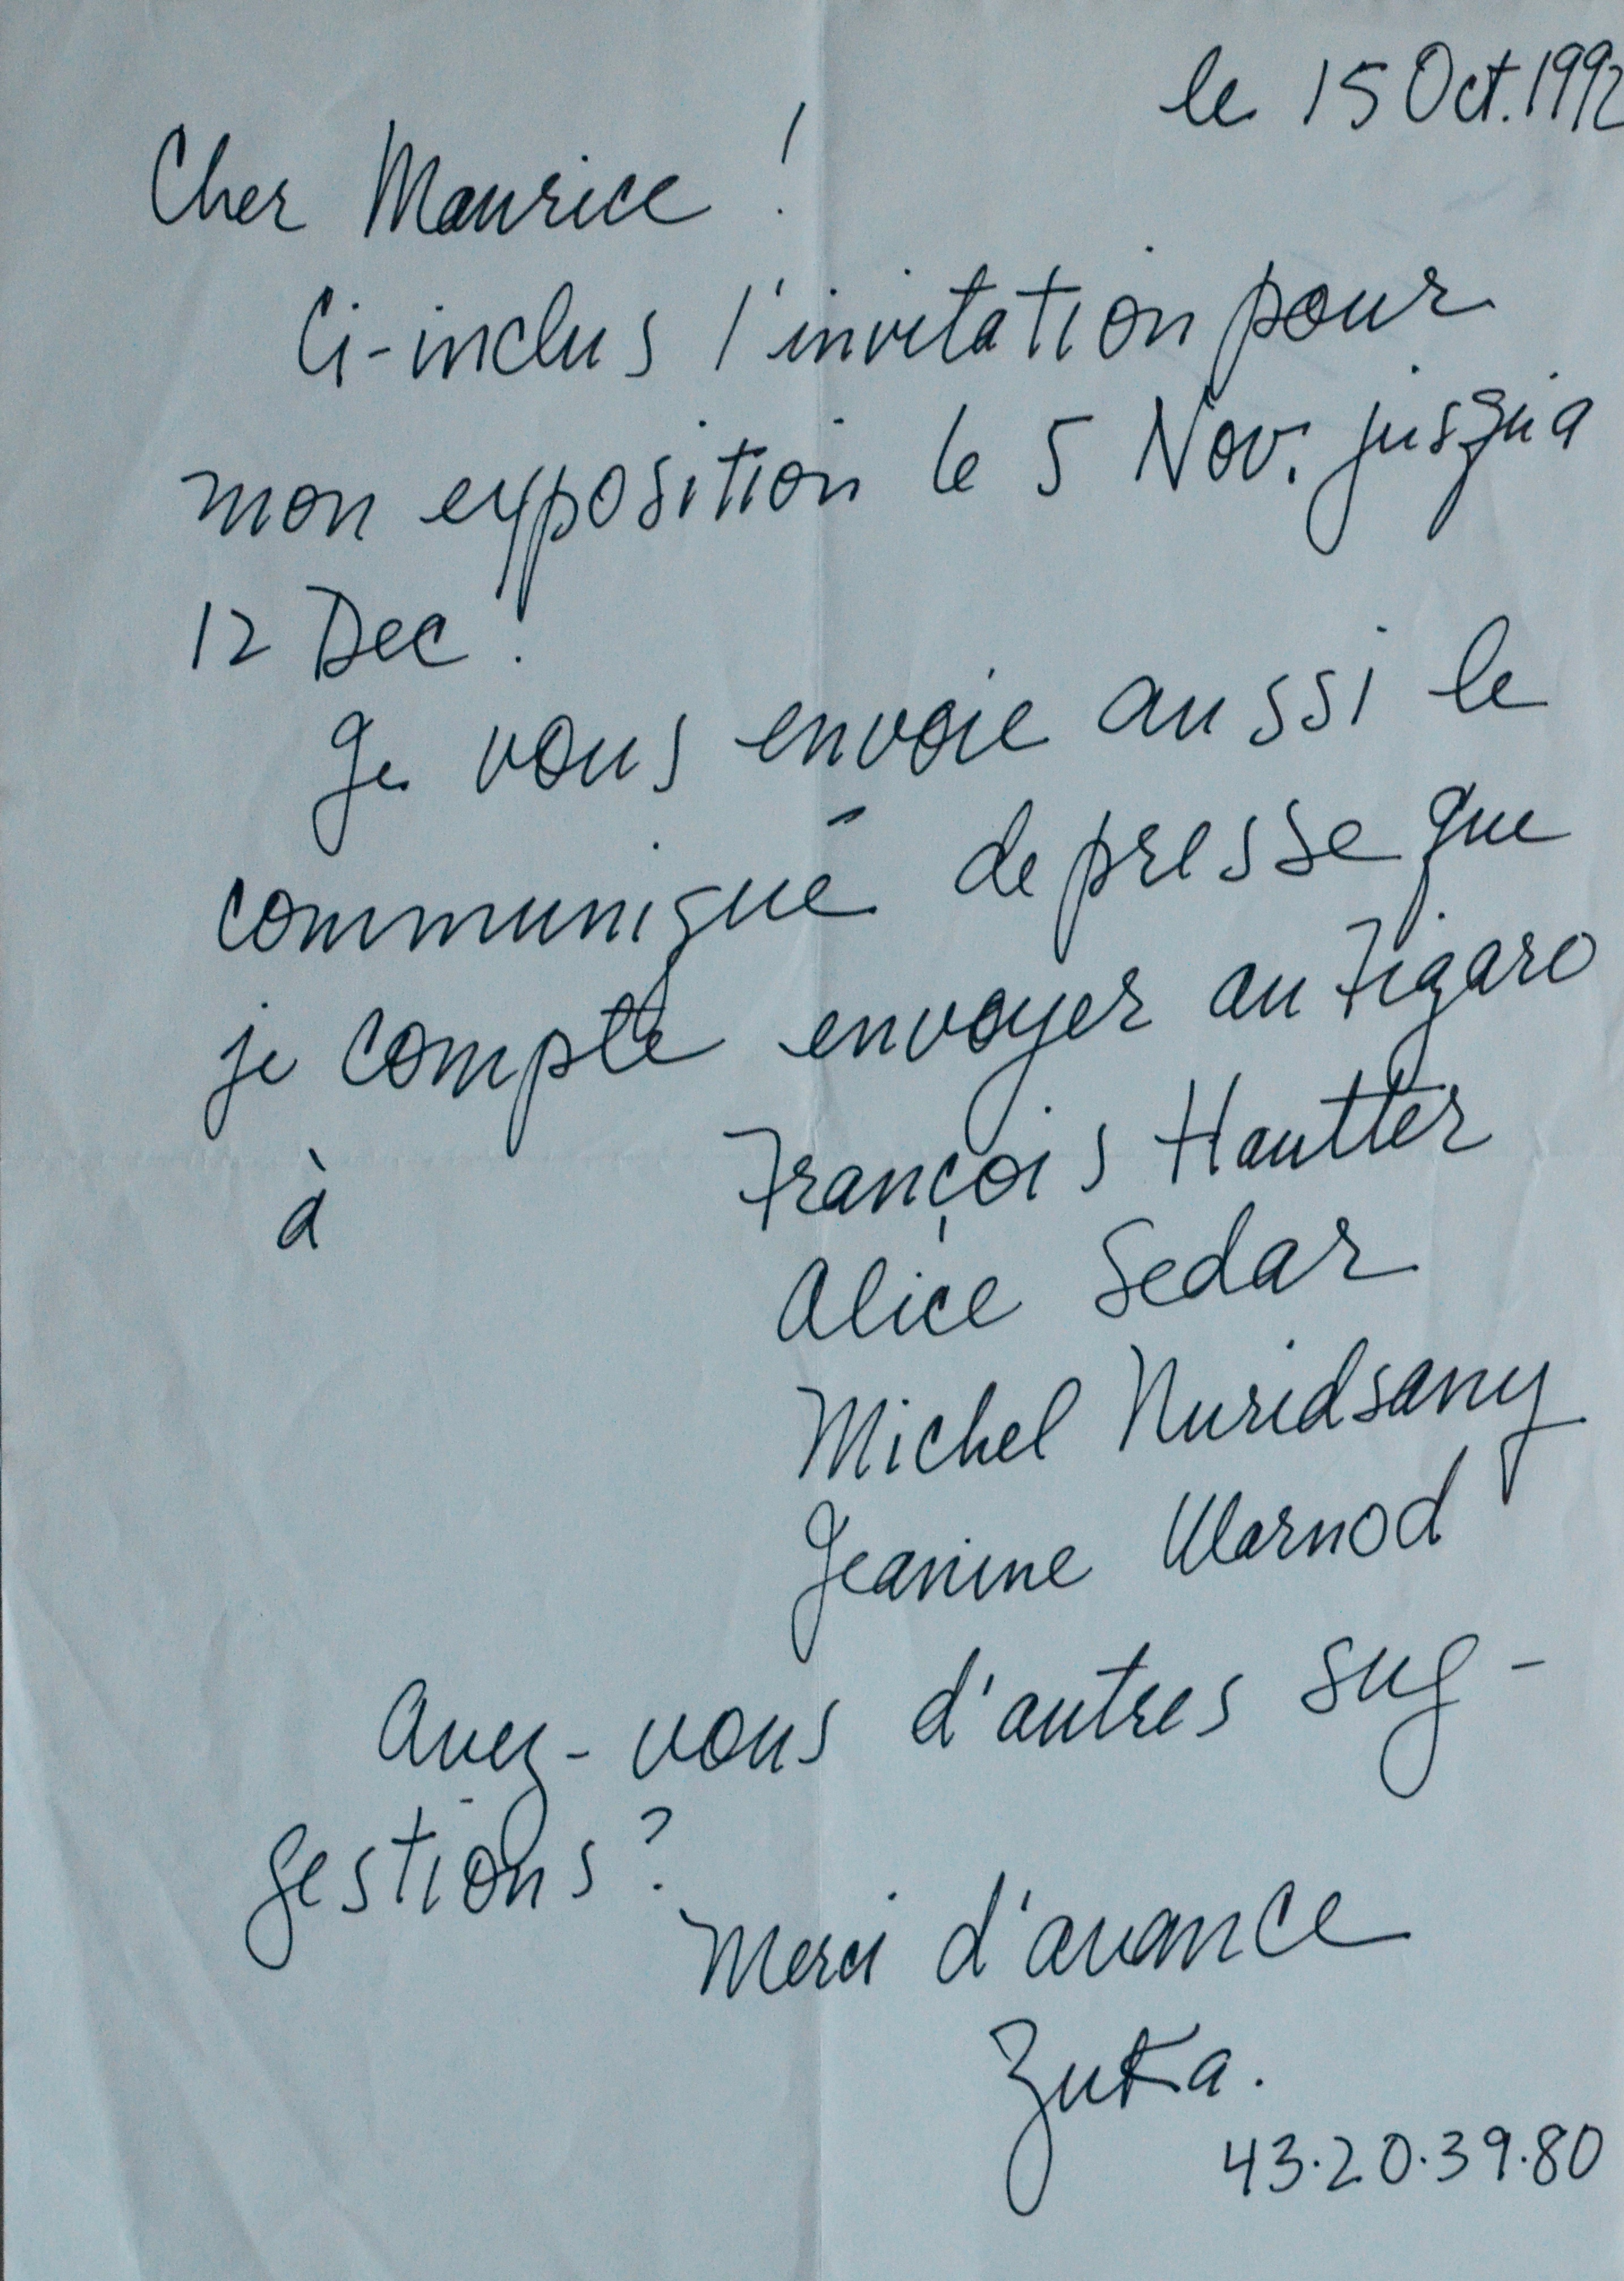 le 15 Oct. 1992
Cher Maurice !
Ci-inclus l'invitation pour
mon exposition le 5 Nov. jusqu'a
12 Dec !
Je vous envoie aussi le
communiqué de presse que
je compte envoyer au Figaro
à François Hautter
Alice Sedar
Michel Nuridsany
Jeanine Warnod
Avez-vous d'autres sug-
gestions ?
Merci d'avance
Zuka.
43.20.39.80